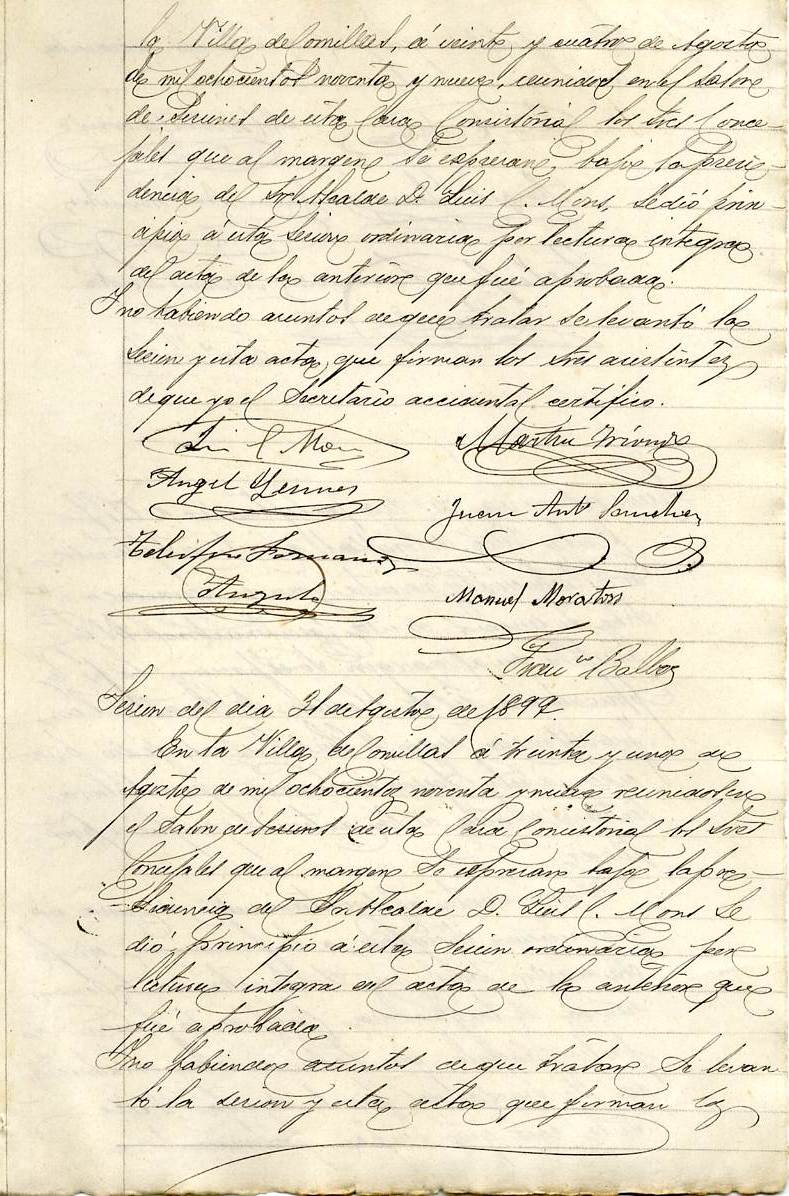 la Villa de Comillas, á veinte y cuatro de Agosto
de mil ochocientos noventa y nueve, reunidos en el Salon
de Sesiones de esta Casa Consistorial los Sres Conce-
jales que al margen se expresan, bajo la presi-
dencia del Sr. Alcalde D. Luis C. Mons, se dió prin-
cipio á esta Sesion ordinaria por lectura integra
del acta de la anterior que fué aprobada.
Y no habiendo asuntos de que tratar se levantó la
Sesion y esta acta, que firman los Sres asistentes
de que yo el Secretario accidental certifico.
Luis C Mons
Angel
Juan Antº Sanchez
Telesforo Fernandez
Angulo
Manuel Moraton
Franco Balboa
Sesion del dia 31 de Agosto de 1899.
En la Villa de Comillas á treinta y uno de
Agosto de mil ochocientos noventa y nueve reunidos en
el Salon de Sesiones de esta Casa Consistorial los Sres
Concejales que al margen se expresan bajo la pre-
sidencia del Sr. Alcalde D. Luis C. Mons se
dió principio á esta Sesion ordinaria por
lectura integra del acta de la anterior que
fué aprobada.
Y no habiendo asuntos de que tratar se levan
tó la sesion y esta acta que firman los